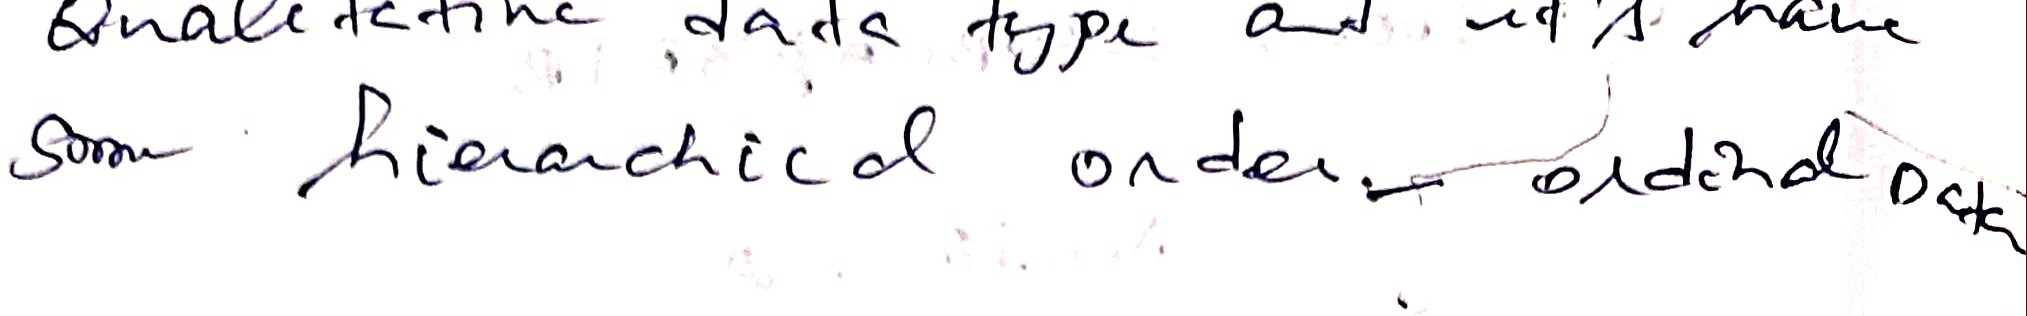 Qualitative data type and it's have
some hierarchical order. - ordinal Data